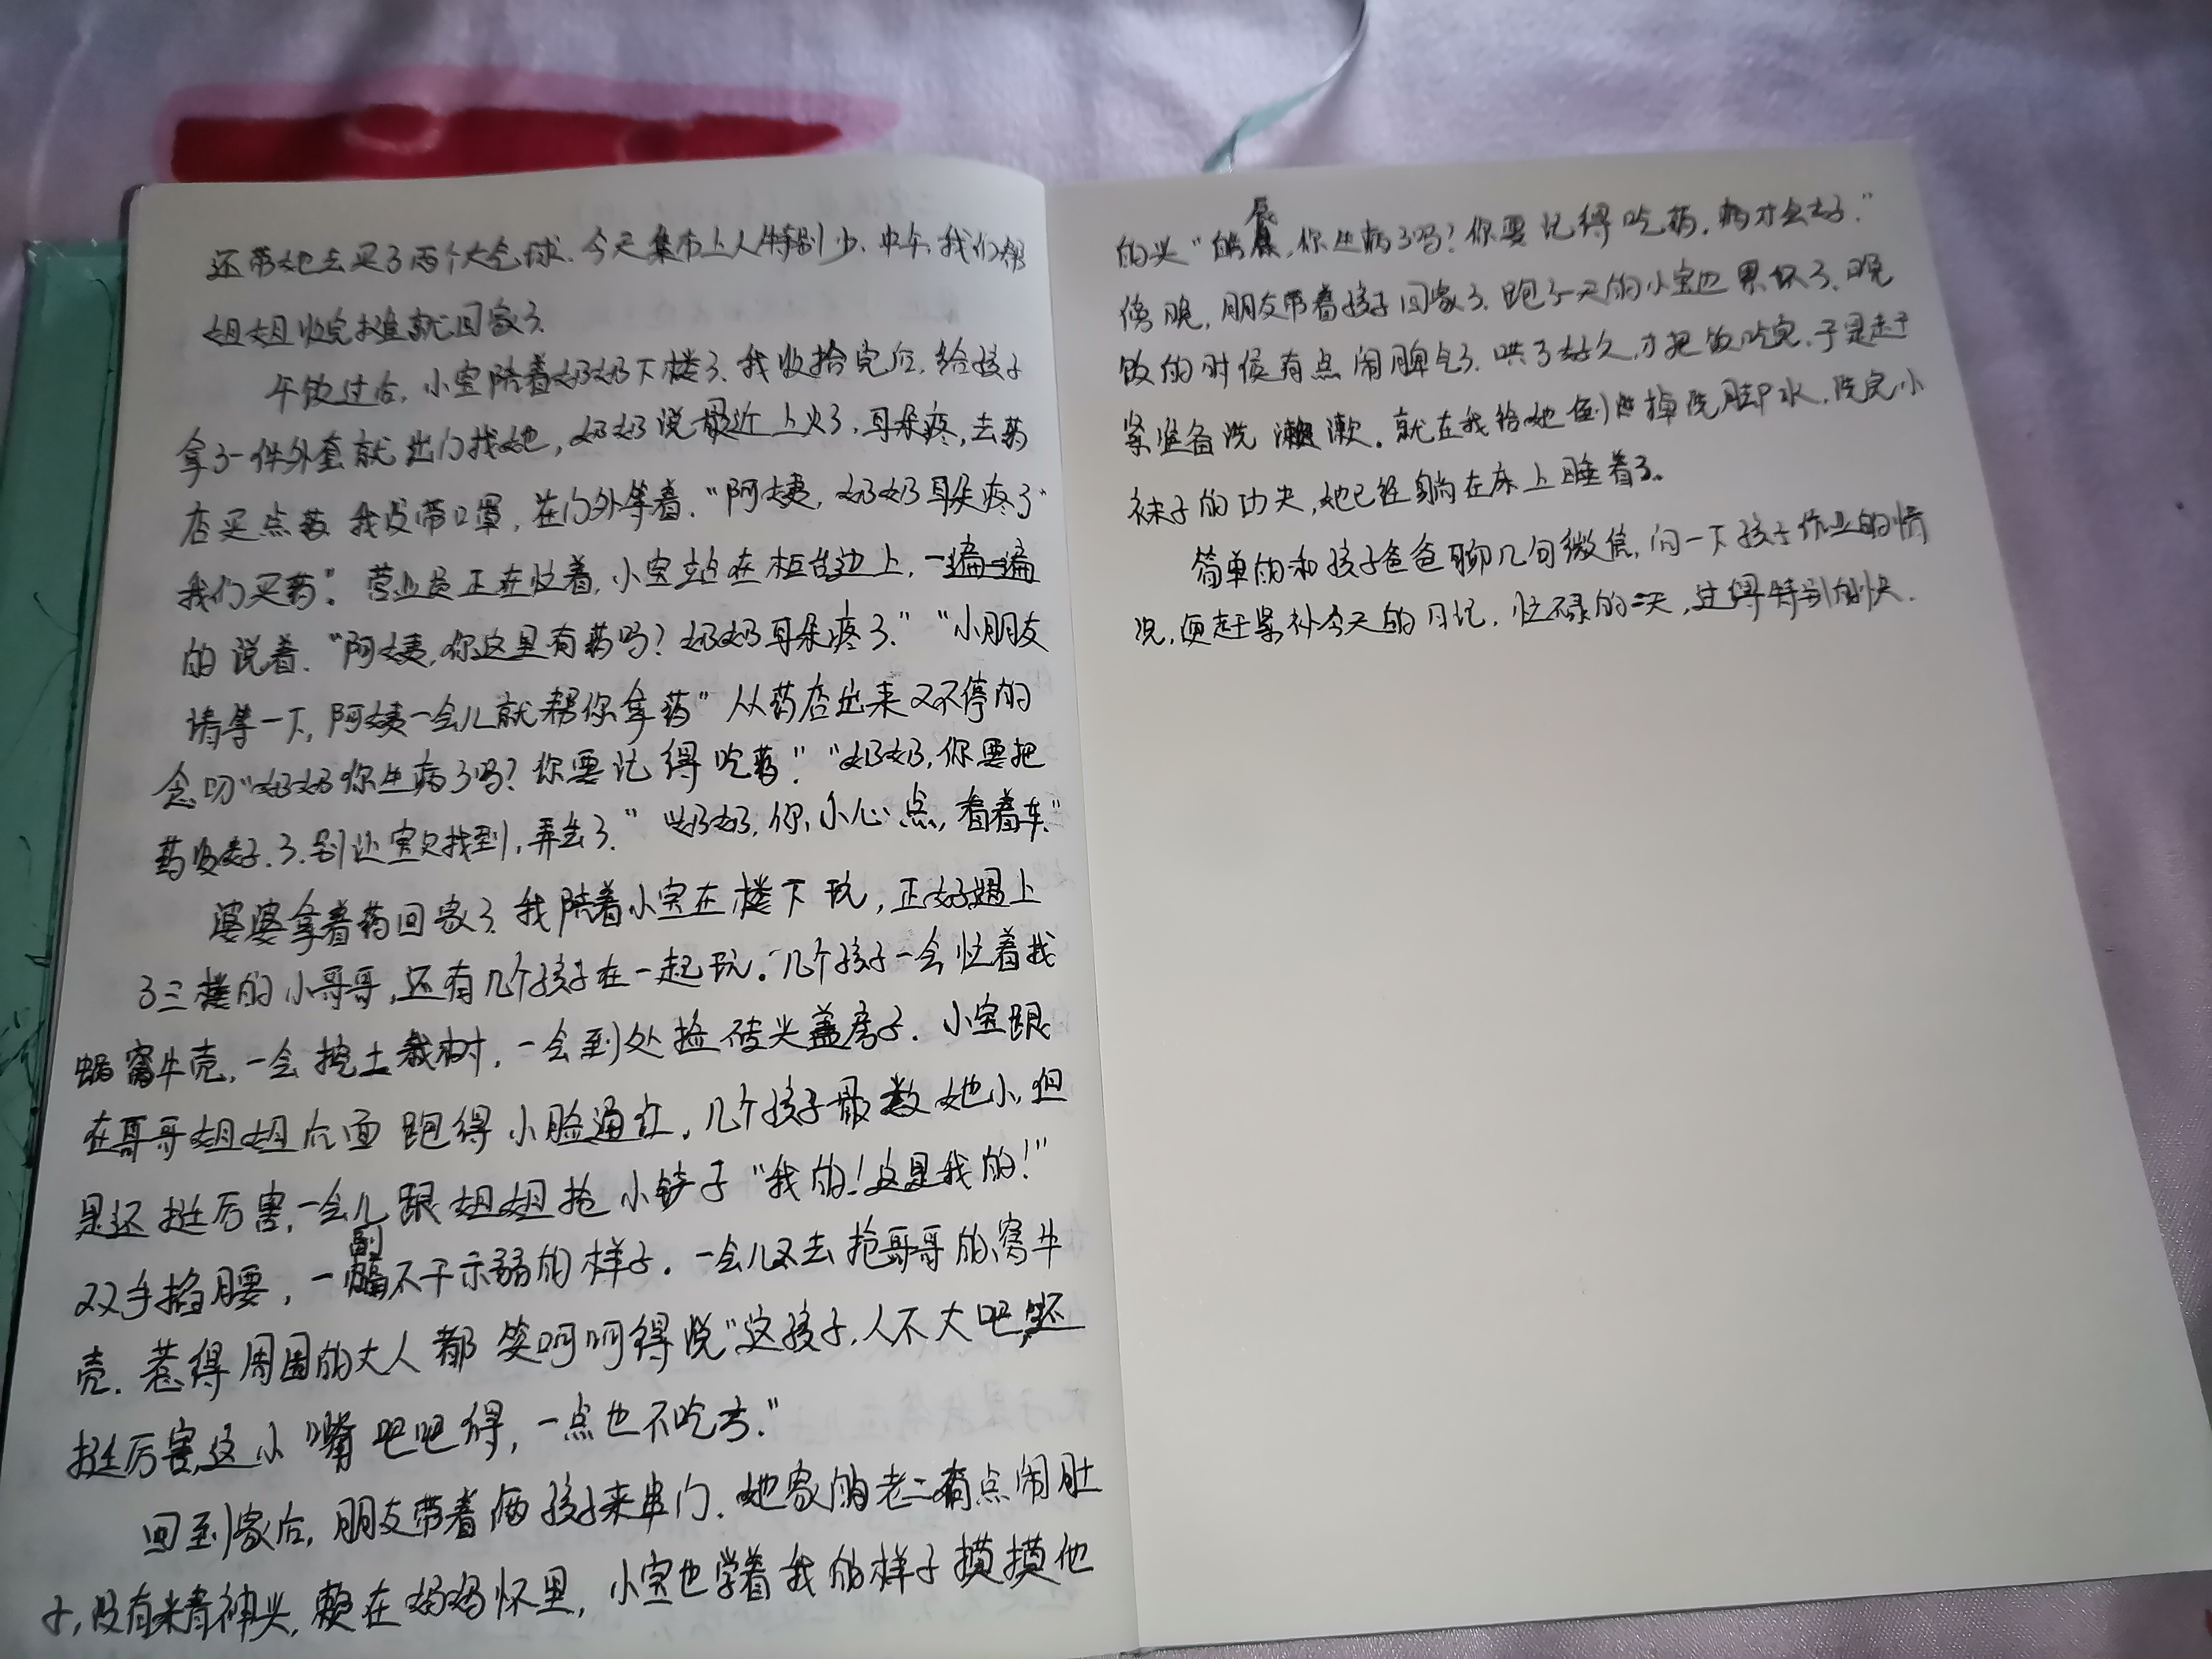 还带她去买了两个大气球。今天集市上人特别少。中午，我们帮
姐姐收完摊就回家了。
午饭过后，小宝陪着奶奶下楼了。我收拾完后，给孩子
拿了一件外套就出门找她，奶奶说最近上火了，耳朵疼，去药
店买点药 我没带口罩，在门外等着。“阿姨，奶奶耳朵疼了”
我们买药”。营业员正在忙着，小宝站在柜台边上，一遍一遍
的说着。“阿姨，你这里有药吗？奶奶耳朵疼了。”“小朋友
请等一下，阿姨一会儿就帮你拿药”从药店出来又不停的
念叨“奶奶你生病了吗？你要记得吃药”。“奶奶，你要把
药收好.了.别让宝贝找到，弄丢了。”“奶奶，你，小心点，看着车”
婆婆拿着药回家了。我陪着小宝在楼下玩，正好遇上
了三楼的小哥哥，还有几个孩子在一起玩。几个孩子一会忙着找
蜗窝牛壳，一会挖土栽树，一会到处捡砖头盖房子。小宝跟
在哥哥姐姐后面跑得小脸通红，几个孩子最数她小，但
是还挺厉害，一会儿跟姐姐抢小铲子“我的！这是我的！”
双手掐腰，一副不干示弱的样子。一会儿又去抢哥哥的窝牛
壳。惹得周围的大人都笑呵呵得说“这孩子，人不大吧，还
挺厉害，这小嘴吧吧得，一点也不吃亏。”
回到家后，朋友带着俩孩子来串门。她家的老二有点闹肚
子，没有精神头，赖在妈妈怀里，小宝也学着我的样子摸摸他
的头“的辰，你生病了吗？你要记得吃药，病才会好。”
傍晚，朋友带着孩子回家了。跑了一天的小宝也累坏了。晚
饭的时候有点闹脾气了。哄了好久，才把饭吃完，于是赶
紧准备洗漱。就在我给她倒掉洗脚水，洗完小
袜子的功夫，她已经躺在床上睡着了。
简单的和孩子爸爸聊几句微信，问一下孩子作业的情
况，便赶紧补今天的日记，忙碌的一天，过得特别的快。